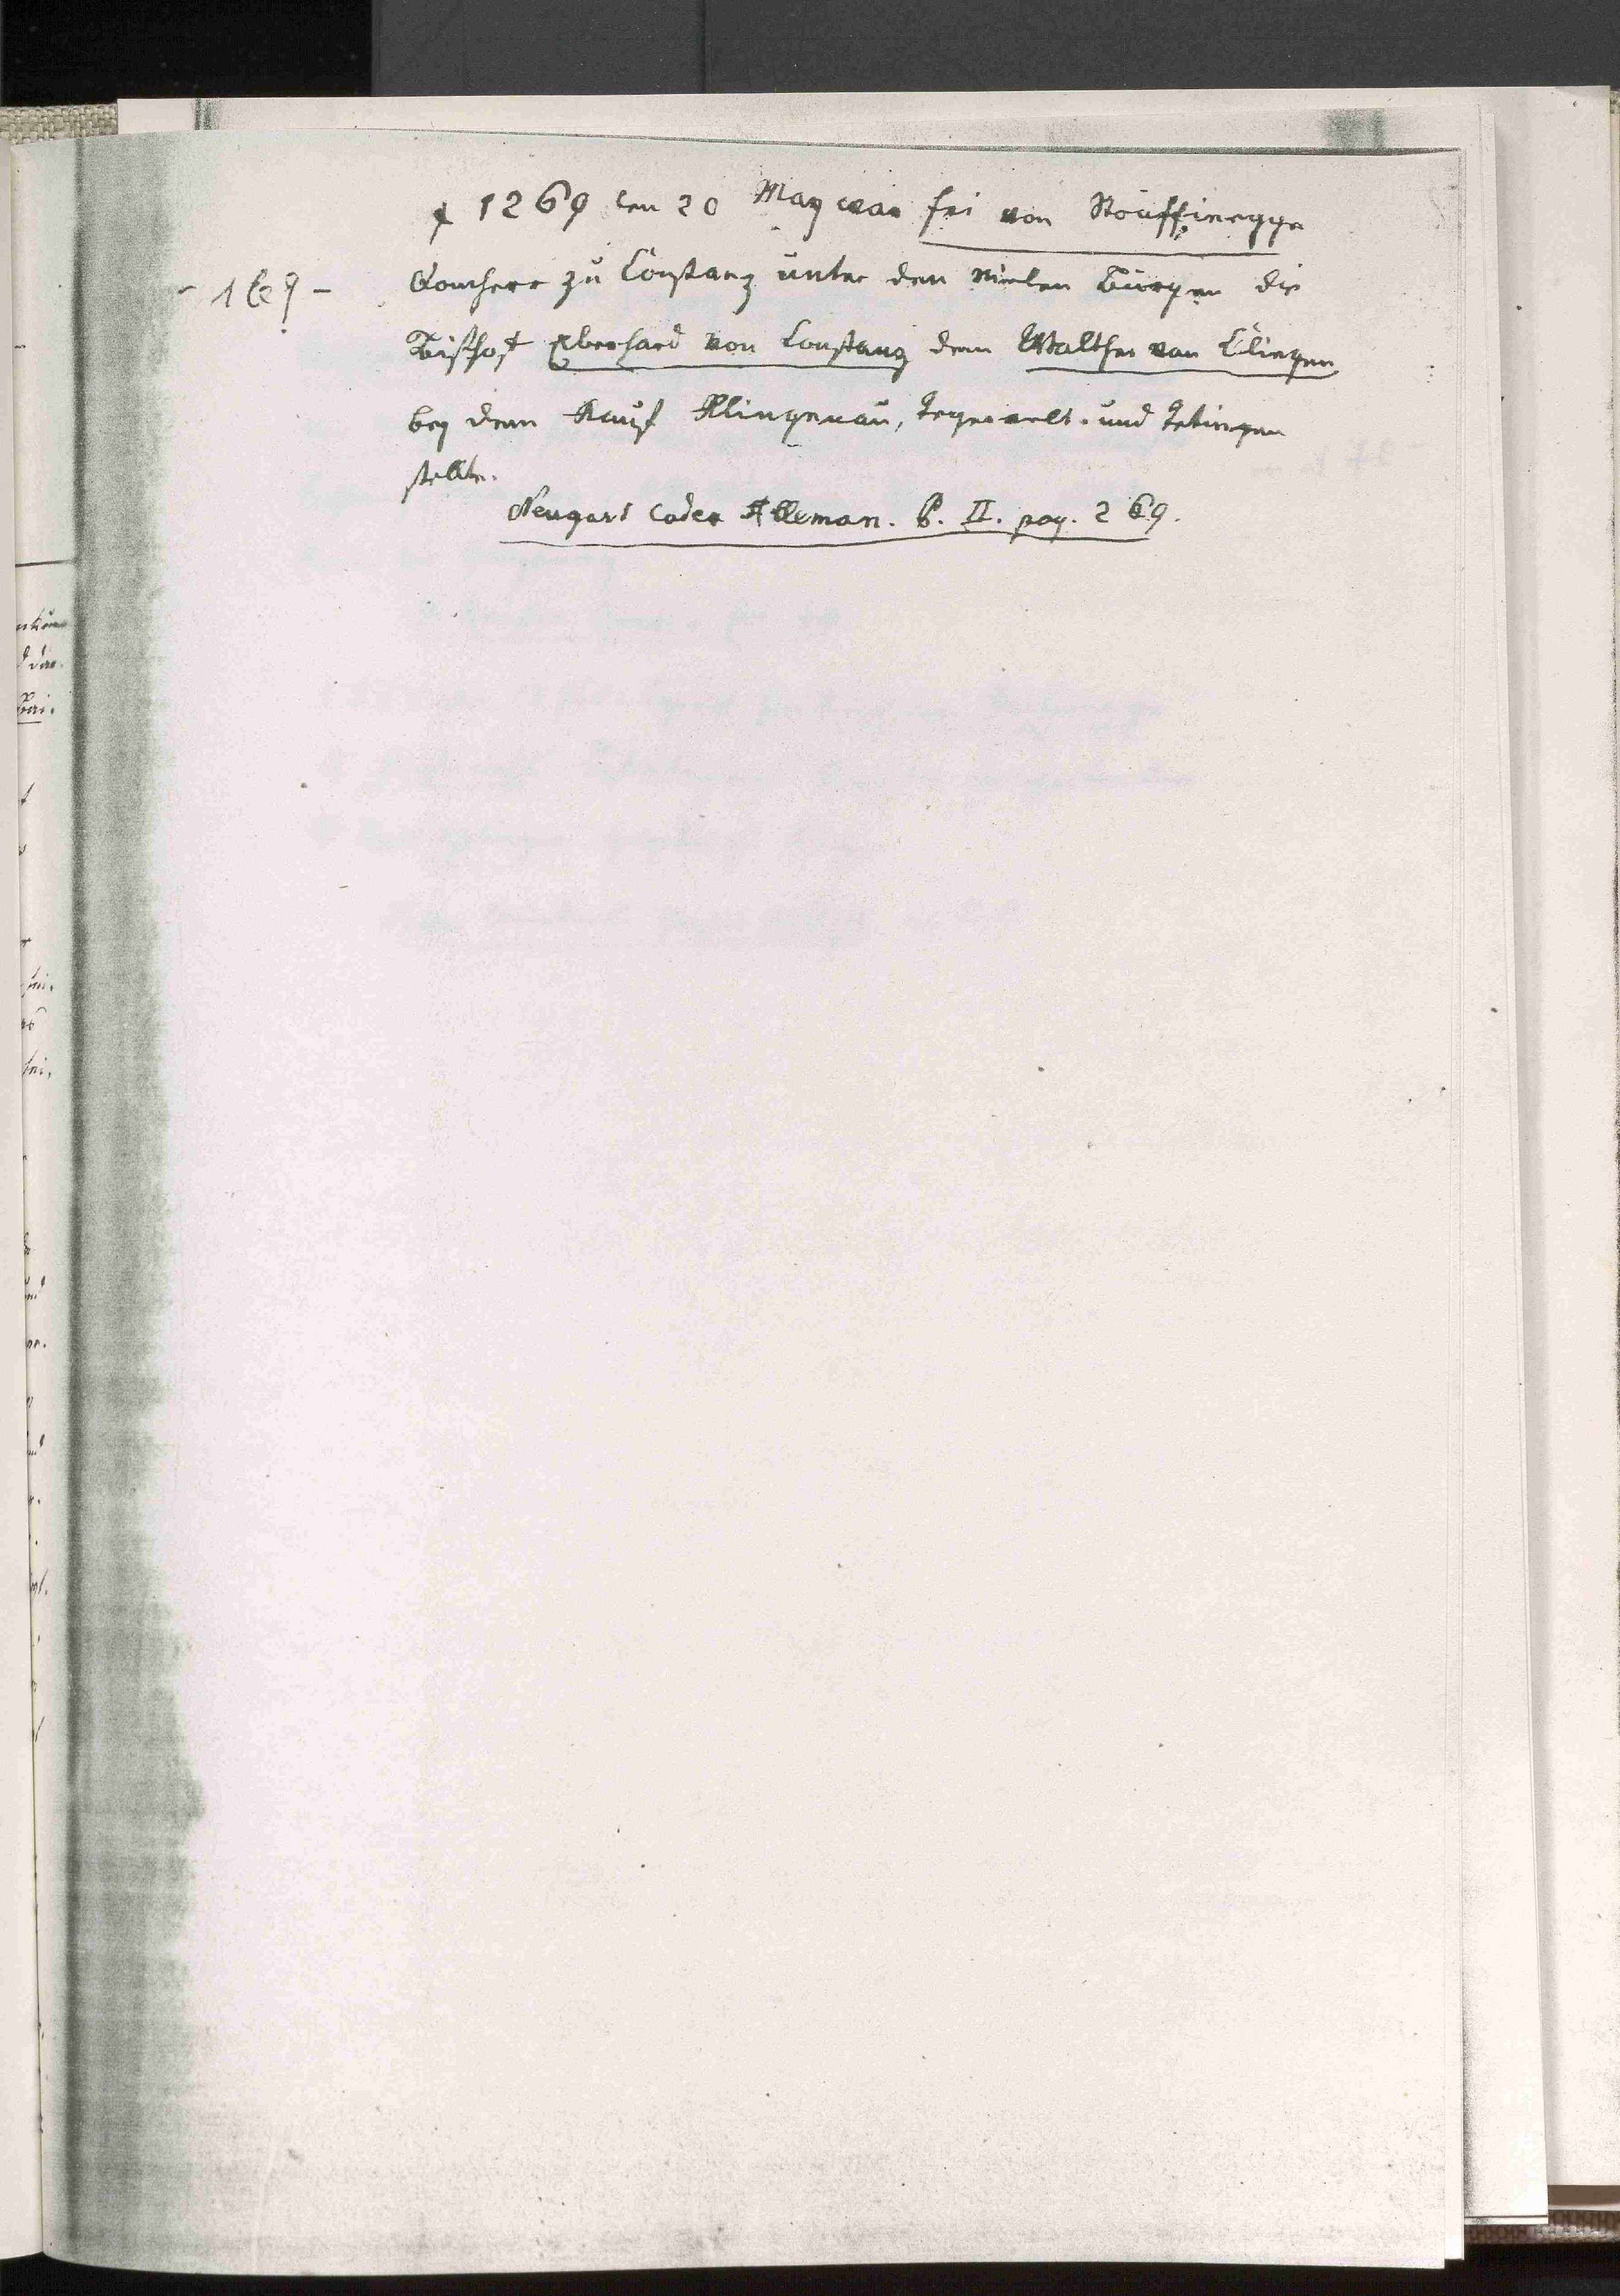 1269 den 20 May war fri von Röuffinegge
- 169 -
Domherr zu Constanz unter den vielen Bürgen die
Bischof Eberhard von Constanz dem Walther von Clingen
bey dem Kauf Klingenau, Tegervelt. und Tetingen
stellte.
Neugart Codex Alleman. b. II. pag. 269.